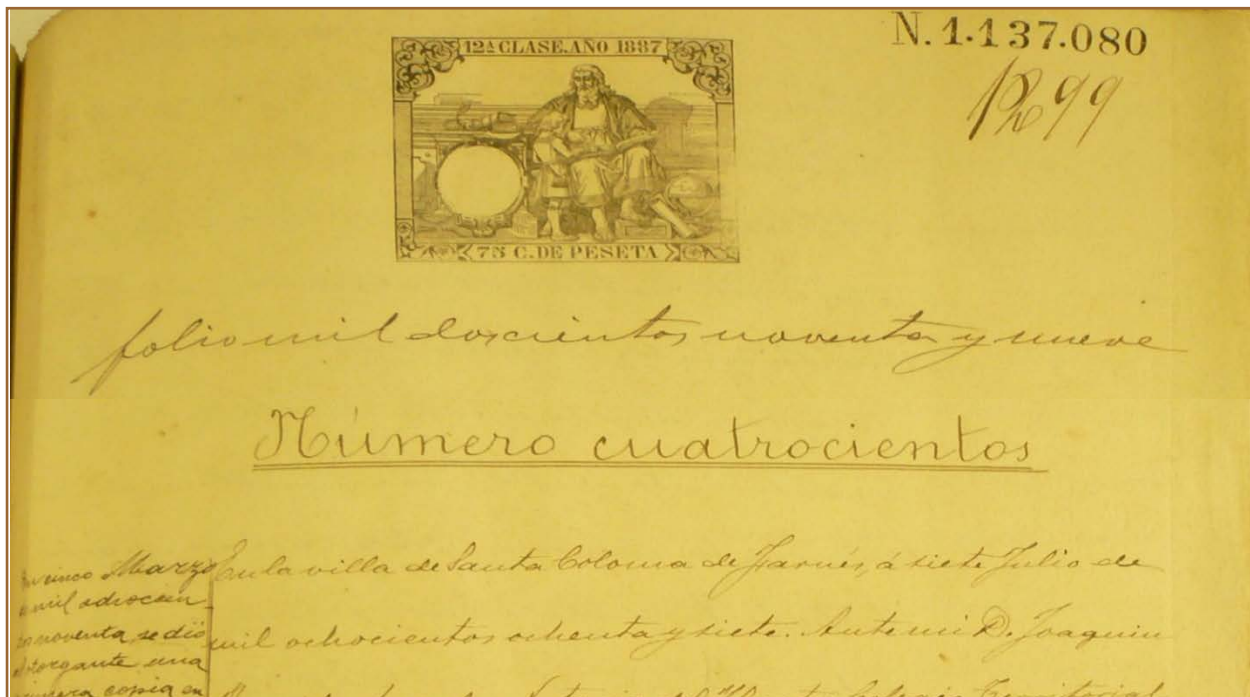 N. 1.137.080
12ª CLASE. AÑO 1887
1299
75 C. DE PESETA
folio mil doscientos noventa y nueve
Número cuatrocientos
cinco Marzo
mil ochocien-
noventa se dió
otorgante una
primera copia en
En la villa de Santa Coloma de Farnés, á siete Julio de
mil ochocientos ochenta y siete. Ante mi D. Joaquin